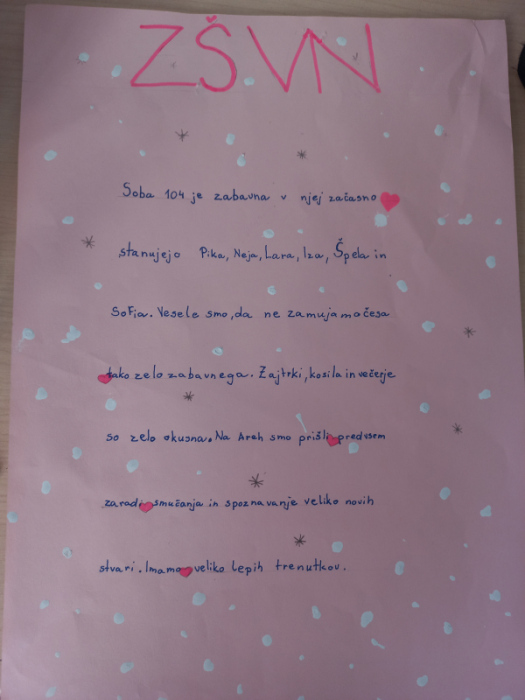 ZŠVN
Soba 104 je zabavna v njej začasno
stanujejo Pika, Neja, Lara, Iza, Špela in
Sofia. Vesele smo, da ne zamujamo česa
tako zelo zabavnega. Zajtrki, kosila in večerje
so zelo okusna. Na Areh smo prišli predvsem
zaradi smučanja in spoznavanje veliko novih
stvari. Imamo veliko lepih trenutkov.